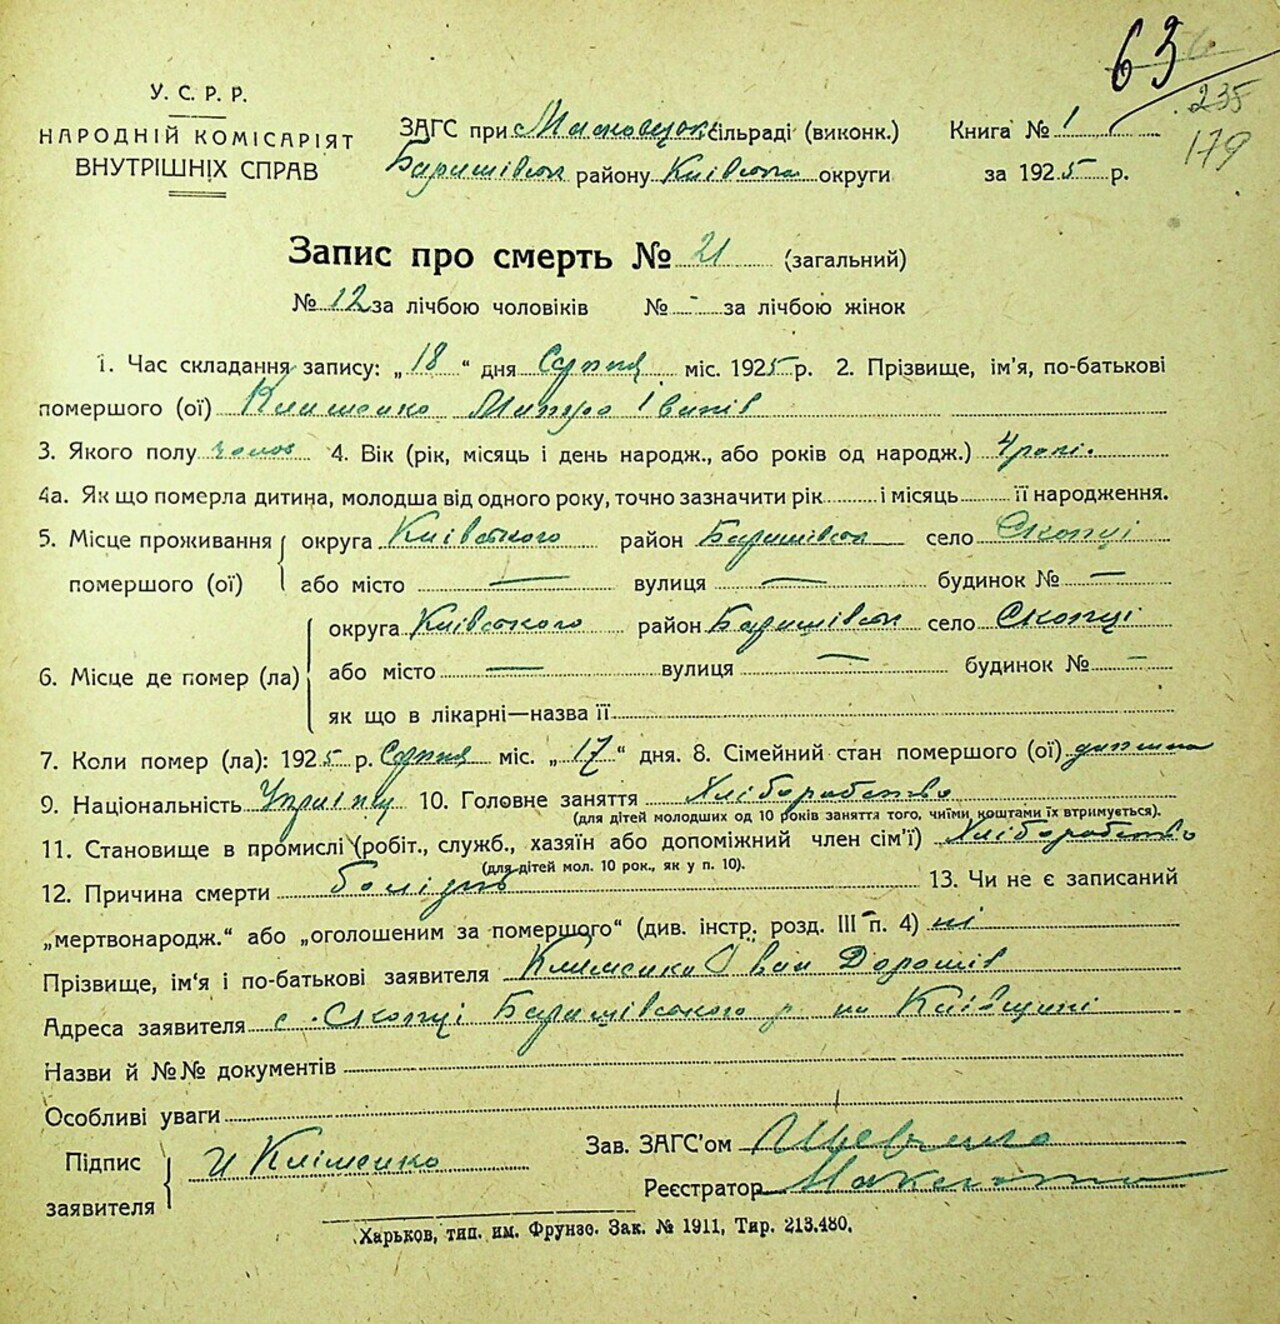 63
235
179
У. С. Р. Р.
НАРОДНІЙ КОМІСАРІЯТ
ВНУТРІШНІХ СПРАВ
ЗАГС при сільраді (виконк.)
Баришівськ району Київськ округи
Книга № 1
за 1925 р.
Запис про смерть № 21 (загальний)
№ 12 за лічбою чоловіків № - за лічбою жінок
1. Час складання запису: „18“ дня Серпня міс. 1925 р. 2. Прізвище, ім'я, по-батькові
помершого (ої) Клименко Іванів
3. Якого полу чолов 4. Вік (рік, місяць і день народж., або років од народж.) 4 роки.
4а. Як що померла дитина, молодша від одного року, точно зазначити рік і місяць її народження.
5. Місце проживання помершого (ої)
округа Київського район Баришівськ село Скопці
або місто — вулиця — будинок № —
6. Місце де помер (ла)
округа Київського район Баришівськ село Скопці
або місто — вулиця — будинок № —
як що в лікарні—назва її
7. Коли помер (ла): 1925 р. Серпня міс. „17“ дня. 8. Сімейний стан помершого (ої) дитина
9. Національність Українець 10. Головне заняття Хліборобство
(для дітей молодших од 10 років заняття того, чиїми коштами їх втримується).
11. Становище в промислі (робіт., служб., хазяїн або допоміжний член сім'ї) Хліборобство
(для дітей мол. 10 рок., як у п. 10).
12. Причина смерти 13. Чи не є записаний
„мертвонародж.“ або „оголошеним за помершого“ (див. інстр. розд. III п. 4) ні
Прізвище, ім'я і по-батькові заявителя Клименко Іван Дорошів
Адреса заявителя с. Скопці Баришівського р. на Київщині
Назви й №№ документів
Особливі уваги
Підпис заявителя И Кліменко
Зав. ЗАГС'ом
Реєстратор
Харьков, тип. им. Фрунзе. Зак. № 1911, Тир. 213.480.